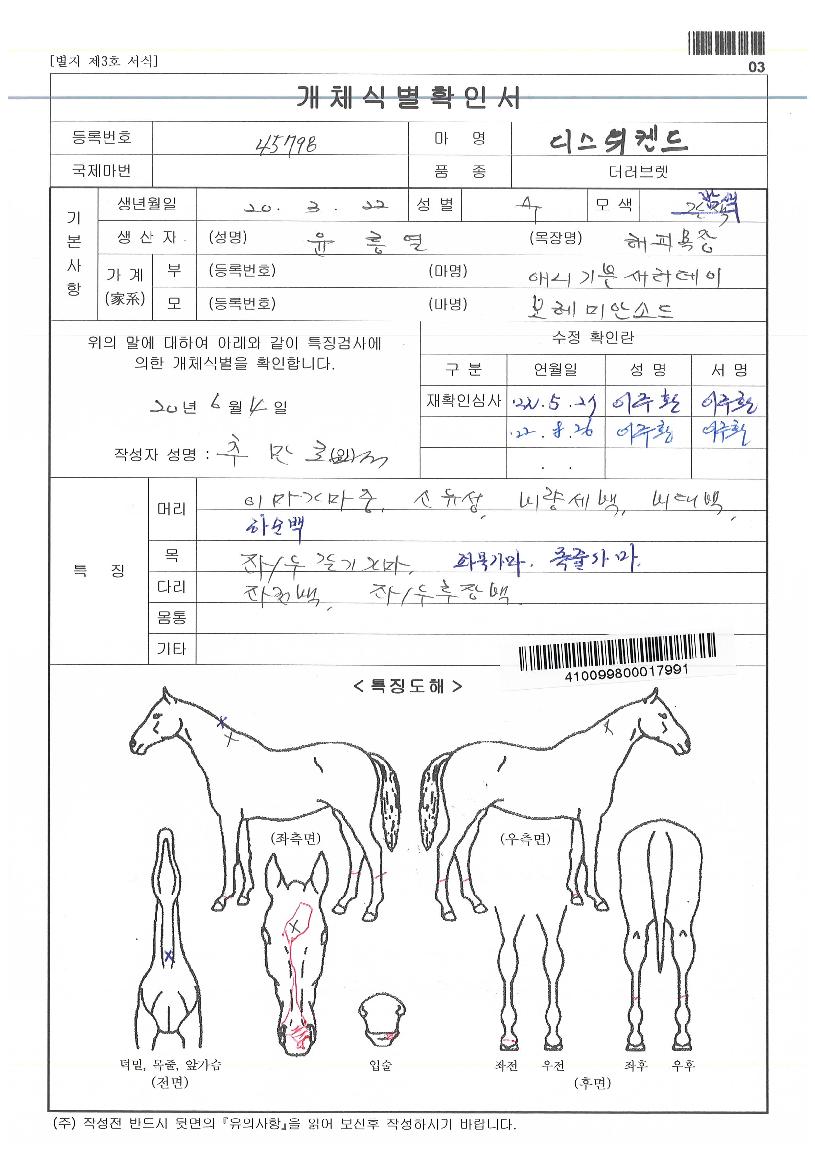 [별지 제3호 서식]
03
개체식별확인서
등록번호 45798 마 명 디스위켄드
국제마번 품 종 더러브렛
기본사항
생년월일 20. 3. 22 성별 모색
생산자 (성명) 윤흥열 (목장명) 해피목장
가계(家系) 부 (등록번호) (마명)
모 (등록번호) (마명) 보헤미안소드
위의 말에 대하여 아래와 같이 특징검사에
의한 개체식별을 확인합니다.
20년 6월 4일
작성자 성명 : 추만호 (인)
수정 확인란
구분 연월일 성명 서명
재확인심사 이주환 이주환
'22. 8. 26 이주환 이주환
. .
특징
머리 이마가마중, 유성, 비량세백, 비대백,
하순백
목 좌/우갈기가마, 좌목가마. 목줄가마.
다리 좌전백, 좌/우후장백
몸통
기타
410099800017991
< 특징도해 >
(좌측면) (우측면)
턱밑, 목줄, 앞가슴 (전면)
입술
좌전 우전 좌후 우후
(후면)
(주) 작성전 반드시 뒷면의 『유의사항』을 읽어 보신후 작성하시기 바랍니다.